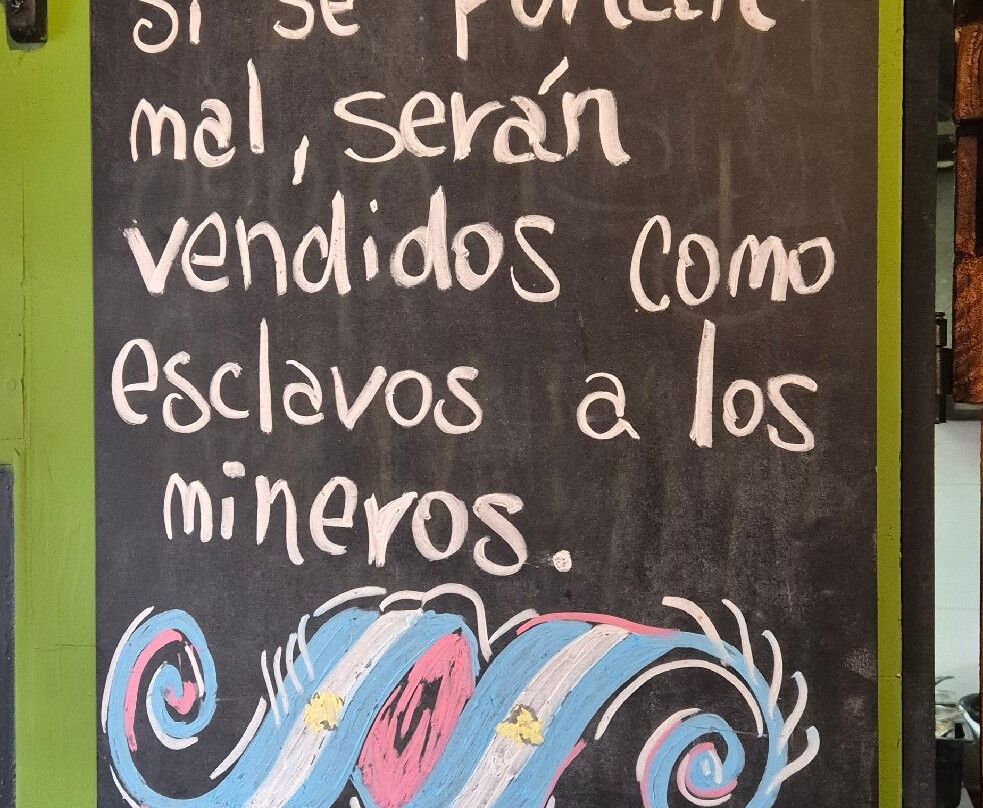 si se portan
mal, serán
vendidos como
esclavos a los
mineros.